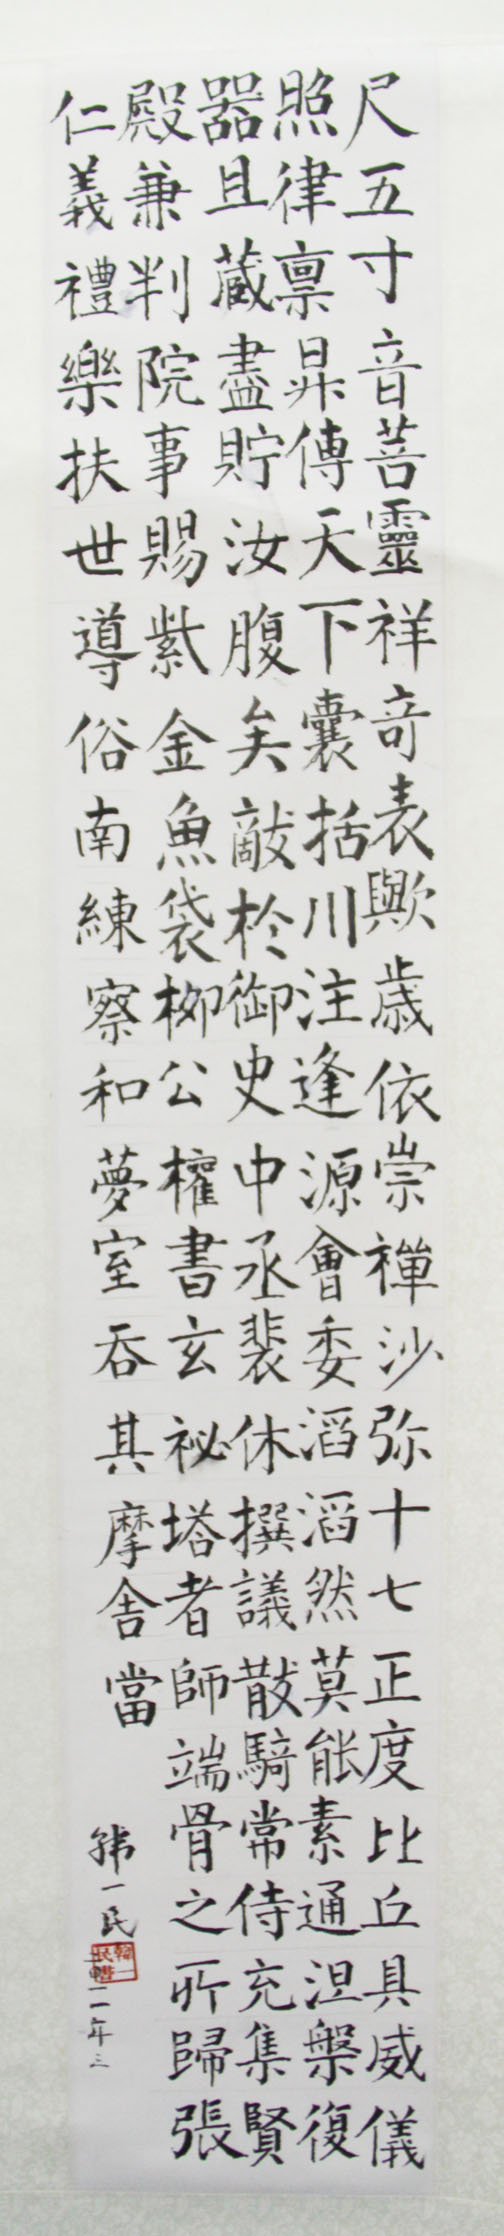 尺五寸音菩靈祥竒表歟歳依崇禪沙弥十七正度比丘具威儀
照律禀昇傳天下囊括川注逢源會委滔滔然莫能素通涅槃復
器且蔵盡貯汝腹矣敵扵御史中丞裴休撰議散騎常侍充集賢
殿兼判院事賜紫金魚袋柳公權書玄祕塔者師端骨之所歸張
仁義禮樂扶世導俗南練察和夢室吞其摩舍當
韩一民
一一年三